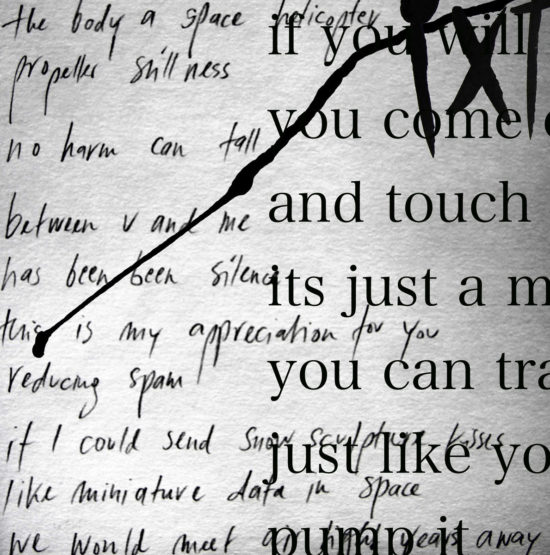 the body a space helicopter
propeller stillness
no harm can fall
between u and me
has been been silence
this is my appreciation for you
reducing spam
if I could send snow sculpture kisses
like miniature data in space
we would meet light years away
if you will
you come
and touch
its just a m
you can tra
just like yo
pump it